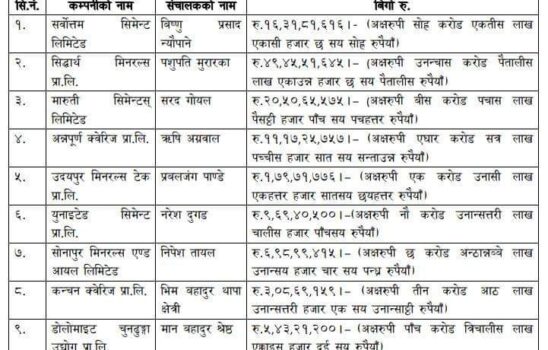 सि.नं. कम्पनीको नाम संचालकको नाम बिगो रु.
१. सर्वोत्तम सिमेन्ट विष्णु प्रसाद रु.१६,३१,८१,६१६।- (अक्षरुपी सोह्र करोड एकतीस लाख
लिमिटेड न्यौपाने एकासी हजार छ सय सोह्र रुपैयाँ)
२. सिद्धार्थ मिनरल्स पशुपति मुरारका रु.४९,४५,५१,६४५।- (अक्षरुपी उनन्चास करोड पैतालीस
प्रा.लि. लाख एकाउन्न हजार छ सय पैतालीस रुपैयाँ)
३. मारुती सिमेन्टस् सरद गोयल रु.२०,५०,६५,५७५।- (अक्षरुपी बीस करोड पचास लाख
लिमिटेड पैसठ्ठी हजार पाँच सय पचहत्तर रुपैयाँ)
४. अन्नपूर्ण क्वेरिज प्रा.लि. ऋषि अग्रवाल रु.११,१७,२५,७५७।- (अक्षरुपी एघार करोड सत्र लाख
पच्चीस हजार सात सय सन्ताउन्न रुपैयाँ)
५. उदयपुर मिनरल्स टेक प्रवलजंग पाण्डे रु.१,७९,७१,७७६।- (अक्षरुपी एक करोड उनासी लाख
प्रा.लि. एकहत्तर हजार सातसय छयहत्तर रुपैयाँ)
६. युनाइटेड सिमेन्ट नरेश दुगड रु.९,६९,४०,५००।-(अक्षरुपी नौ करोड उनान्सत्तरी लाख
प्रा.लि. चालीस हजार पाँचसय रुपैयाँ)
७. सोनापुर मिनरल्स एण्ड निपेश तायल रु.६,९८,९९,४१५।- (अक्षरुपी छ करोड अन्ठानब्बे लाख
आयल लिमिटेड उनान्सय हजार चार सय पन्ध्र रुपैयाँ)
८. कन्चन क्वेरिज प्रा.लि. भिम बहादुर थापा रु.३,०८,६९,१५९।- (अक्षरुपी तीन करोड आठ लाख
क्षेत्री उनान्सत्तरी हजार एक सय उनान्साट्ठी रुपैयाँ)
९. डोलोमाइट चुनढुङ्गा मान बहादुर श्रेष्ठ रु.५,४३,२१,२००।- (अक्षरुपी पाँच करोड त्रिचालीस लाख
उद्योग प्रा.लि. एक्काइस हजार दुई सय रुपैयाँ)